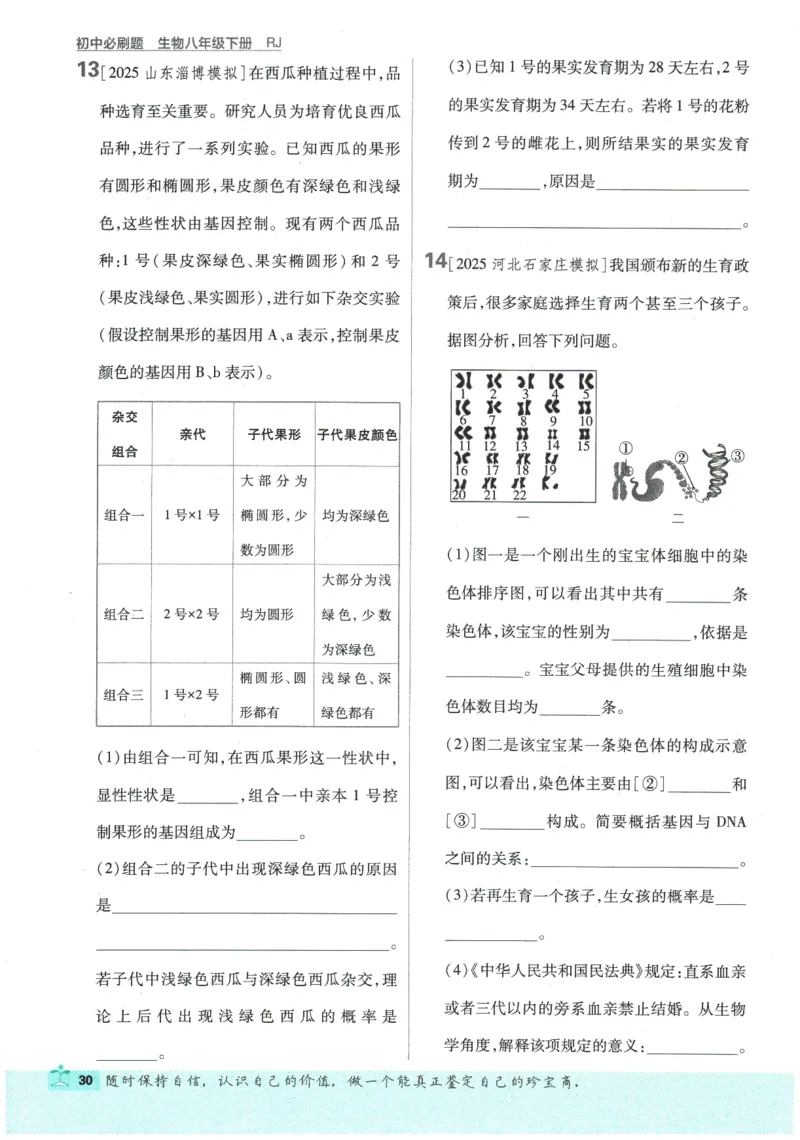 初中必刷题 生物八年级下册 RJ
13[2025 山东淄博模拟]在西瓜种植过程中,品
种选育至关重要。研究人员为培育优良西瓜
品种,进行了一系列实验。已知西瓜的果形
有圆形和椭圆形,果皮颜色有深绿色和浅绿
色,这些性状由基因控制。现有两个西瓜品
种:1 号(果皮深绿色、果实椭圆形)和 2 号
(果皮浅绿色、果实圆形),进行如下杂交实验
(假设控制果形的基因用 A、a 表示,控制果皮
颜色的基因用 B、b 表示)。
杂交
组合
亲代
子代果形
子代果皮颜色
组合一
1 号×1 号
大部分为
椭圆形,少
数为圆形
均为深绿色
组合二
2 号×2 号
均为圆形
大部分为浅
绿色,少数
为深绿色
组合三
1 号×2 号
椭圆形、圆
形都有
浅绿色、深
绿色都有
(1)由组合一可知,在西瓜果形这一性状中,
显性性状是________,组合一中亲本 1 号控
制果形的基因组成为________。
(2)组合二的子代中出现深绿色西瓜的原因
是________________________________
________________________________。
若子代中浅绿色西瓜与深绿色西瓜杂交,理
论上后代出现浅绿色西瓜的概率是
________。
(3)已知 1 号的果实发育期为 28 天左右,2 号
的果实发育期为 34 天左右。若将 1 号的花粉
传到 2 号的雌花上,则所结果实的果实发育
期为________,原因是________________
________________________________。
14[2025 河北石家庄模拟]我国颁布新的生育政
策后,很多家庭选择生育两个甚至三个孩子。
据图分析,回答下列问题。
1 2 3 4 5
6 7 8 9 10
11 12 13 14 15
16 17 18 19
20 21 22
① ② ③
一 二
(1)图一是一个刚出生的宝宝体细胞中的染
色体排序图,可以看出其中共有________条
染色体,该宝宝的性别为________,依据是
________。宝宝父母提供的生殖细胞中染
色体数目均为________条。
(2)图二是该宝宝某一条染色体的构成示意
图,可以看出,染色体主要由[②]________和
[③]________构成。简要概括基因与 DNA
之间的关系:________________________。
(3)若再生育一个孩子,生女孩的概率是____
____________。
(4)《中华人民共和国民法典》规定:直系血亲
或者三代以内的旁系血亲禁止结婚。从生物
学角度,解释该项规定的意义:____________。
30 随时保持自信,认识自己的价值,做一个能真正鉴定自己的珍宝商.